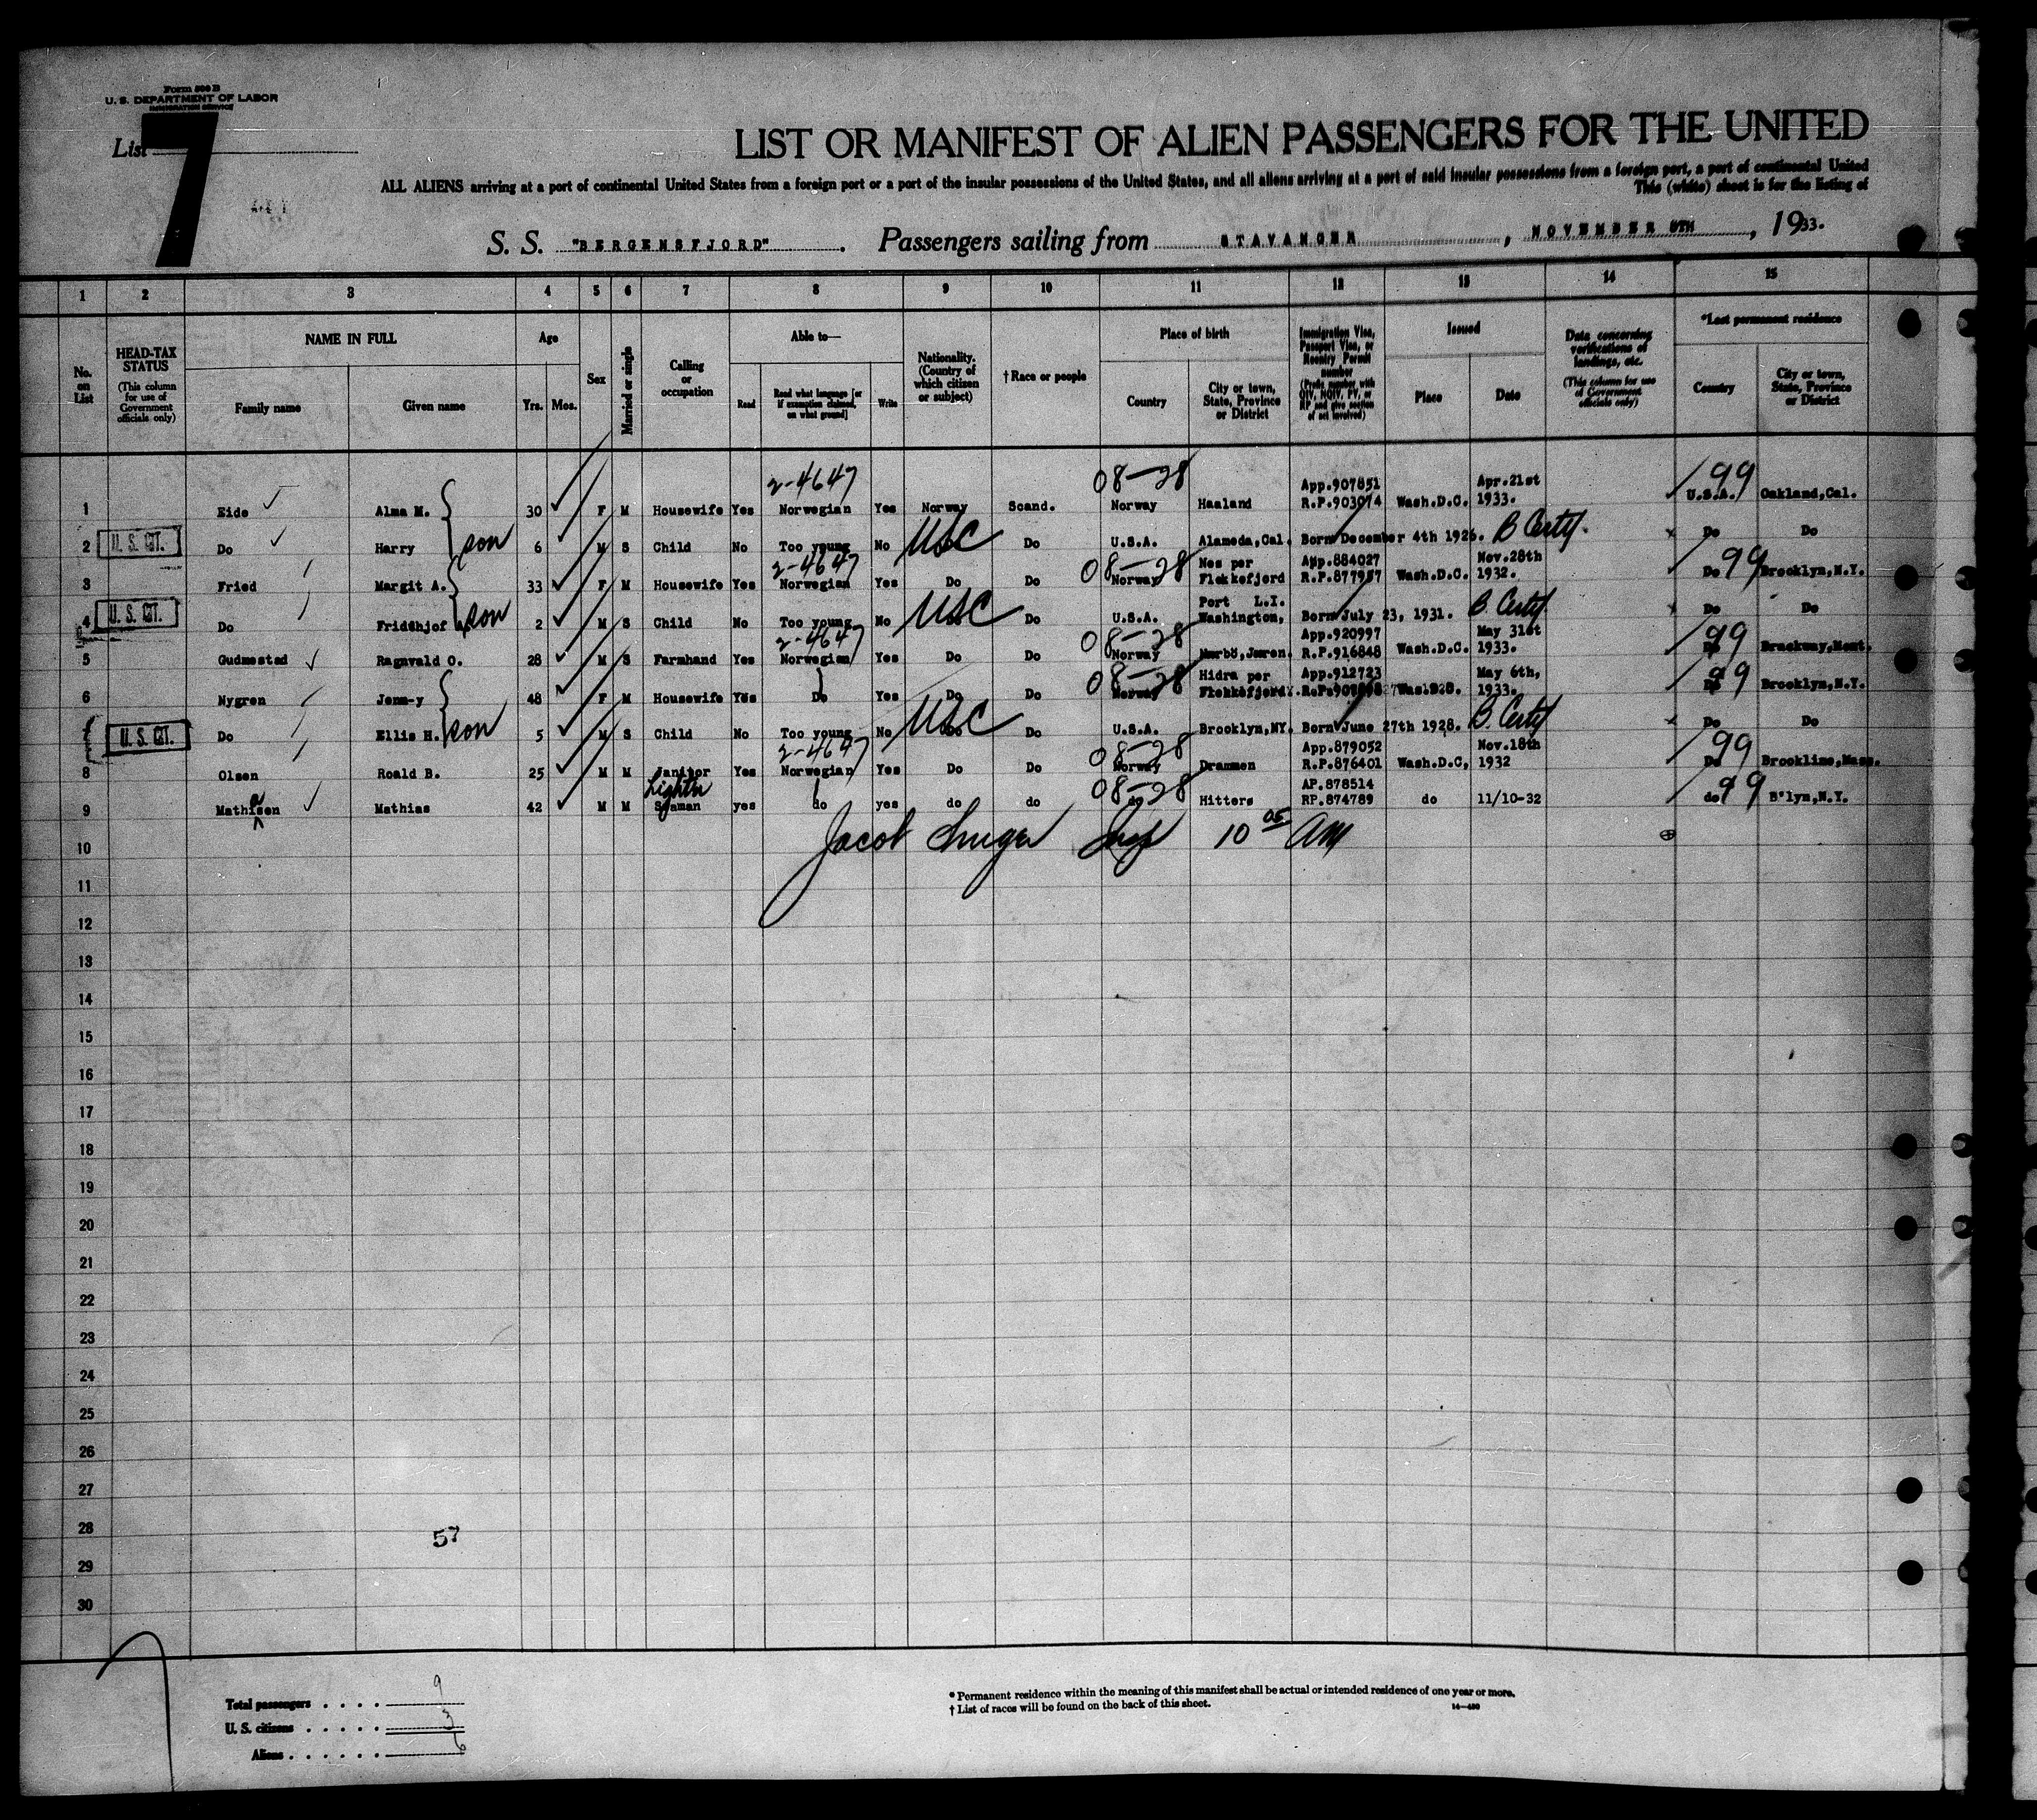 Form 500 B
U. S. DEPARTMENT OF LABOR
IMMIGRATION SERVICE
List 7
LIST OR MANIFEST OF ALIEN PASSENGERS FOR THE UNITED
ALL ALIENS arriving at a port of continental United States from a foreign port or a part of the insular possessions of the United States, and all aliens arriving at a port of said insular possessions from a foreign port, a part of continental United
This (white) sheet is for the listing of
S. S. "BERGENSFJORD". Passengers sailing from STAVANGER, NOVEMBER 5TH, 1933.
1 2 3 4 5 6 7 8 9 10 11 12 13 14 15
No. on List
HEAD-TAX STATUS (This column for use of Government officials only)
NAME IN FULL Family name Given name
Age Yrs. Mos.
Sex
Married or single
Calling or occupation
Able to— Read Read what language [or if exemption claimed, on what ground] Write
Nationality. (Country of which citizen or subject)
†Race or people
Place of birth Country City or town, State, Province or District
Immigration Visa, Passport Visa, or Reentry Permit number (Prefix number with QIV, NQIV, PV, or RP and give section of act involved)
Issued Place Date
Data concerning verifications of landings, etc. (This column for use of Government officials only)
*Last permanent residence Country City or town, State, Province or District
2-4647 08-28 App.907851 Apr.21st 99
1 Eide Alma M. 30 F M Housewife Yes Norwegian Yes Norway Scand. Norway Haaland R.P.903074 Wash.D.C. 1933. U.S.A. Oakland,Cal.
2 U. S. CIT. Do Harry son 6 M S Child No Too young No USC Do U.S.A. Alameda,Cal. Born December 4th 1926. B Certf. Do Do
2-4647 08-28 Nes per App.884027 Nov.28th 99
3 Fried Margit A. 33 F M Housewife Yes Norwegian Yes Do Do Norway Flekkefjord R.P.877957 Wash.D.C. 1932. Do Brooklyn,N.Y.
Port L.I.
4 U. S. CIT. Do Fridthjof son 2 M S Child No Too young No USC Do U.S.A. Washington, Born July 23, 1931. B. Certf. Do Do
2-4647 08-28 App.920997 May 31st 99
5 Gudmestad Ragnvald O. 28 M S Farmhand Yes Norwegian Yes Do Do Norway R.P.916848 Wash.D.C. 1933. Do Brockway,Mont.
08-28 Hidra per App.912723 May 6th, 99
6 Nygren Jenn-y 48 F M Housewife Yes Do Yes Do Do Norway Flekkefjord. Wash.D.C. 1933. Do Brooklyn,N.Y.
7 U. S. CIT. Do Ellis H. son 5 M S Child No Too young No USC Do Do U.S.A. Brooklyn,NY. Born June 27th 1928. B. Certf Do Do
2-4647 08-28 App.879052 Nov.18th 99
8 Olsen Roald B. 25 M M Janitor Yes Norwegian Yes Do Do Norway Drammen R.P.876401 Wash.D.C, 1932 Do Brookline,Mass.
Lighter 08-28 AP.878514 99
9 Mathisen a Mathias 42 M M Seaman yes do yes do do do Hitters RP.874789 do 11/10-32 do B'lyn,N.Y.
10 Jacob Insp 10 05 AM
11
12
13
14
15
16
17
18
19
20
21
22
23
24
25
26
27
28 57
29
30
Total passengers . . . . 9
U. S. citizens . . . . . 3
Aliens . . . . . . 6
* Permanent residence within the meaning of this manifest shall be actual or intended residence of one year or more.
† List of races will be found on the back of this sheet. 14—480